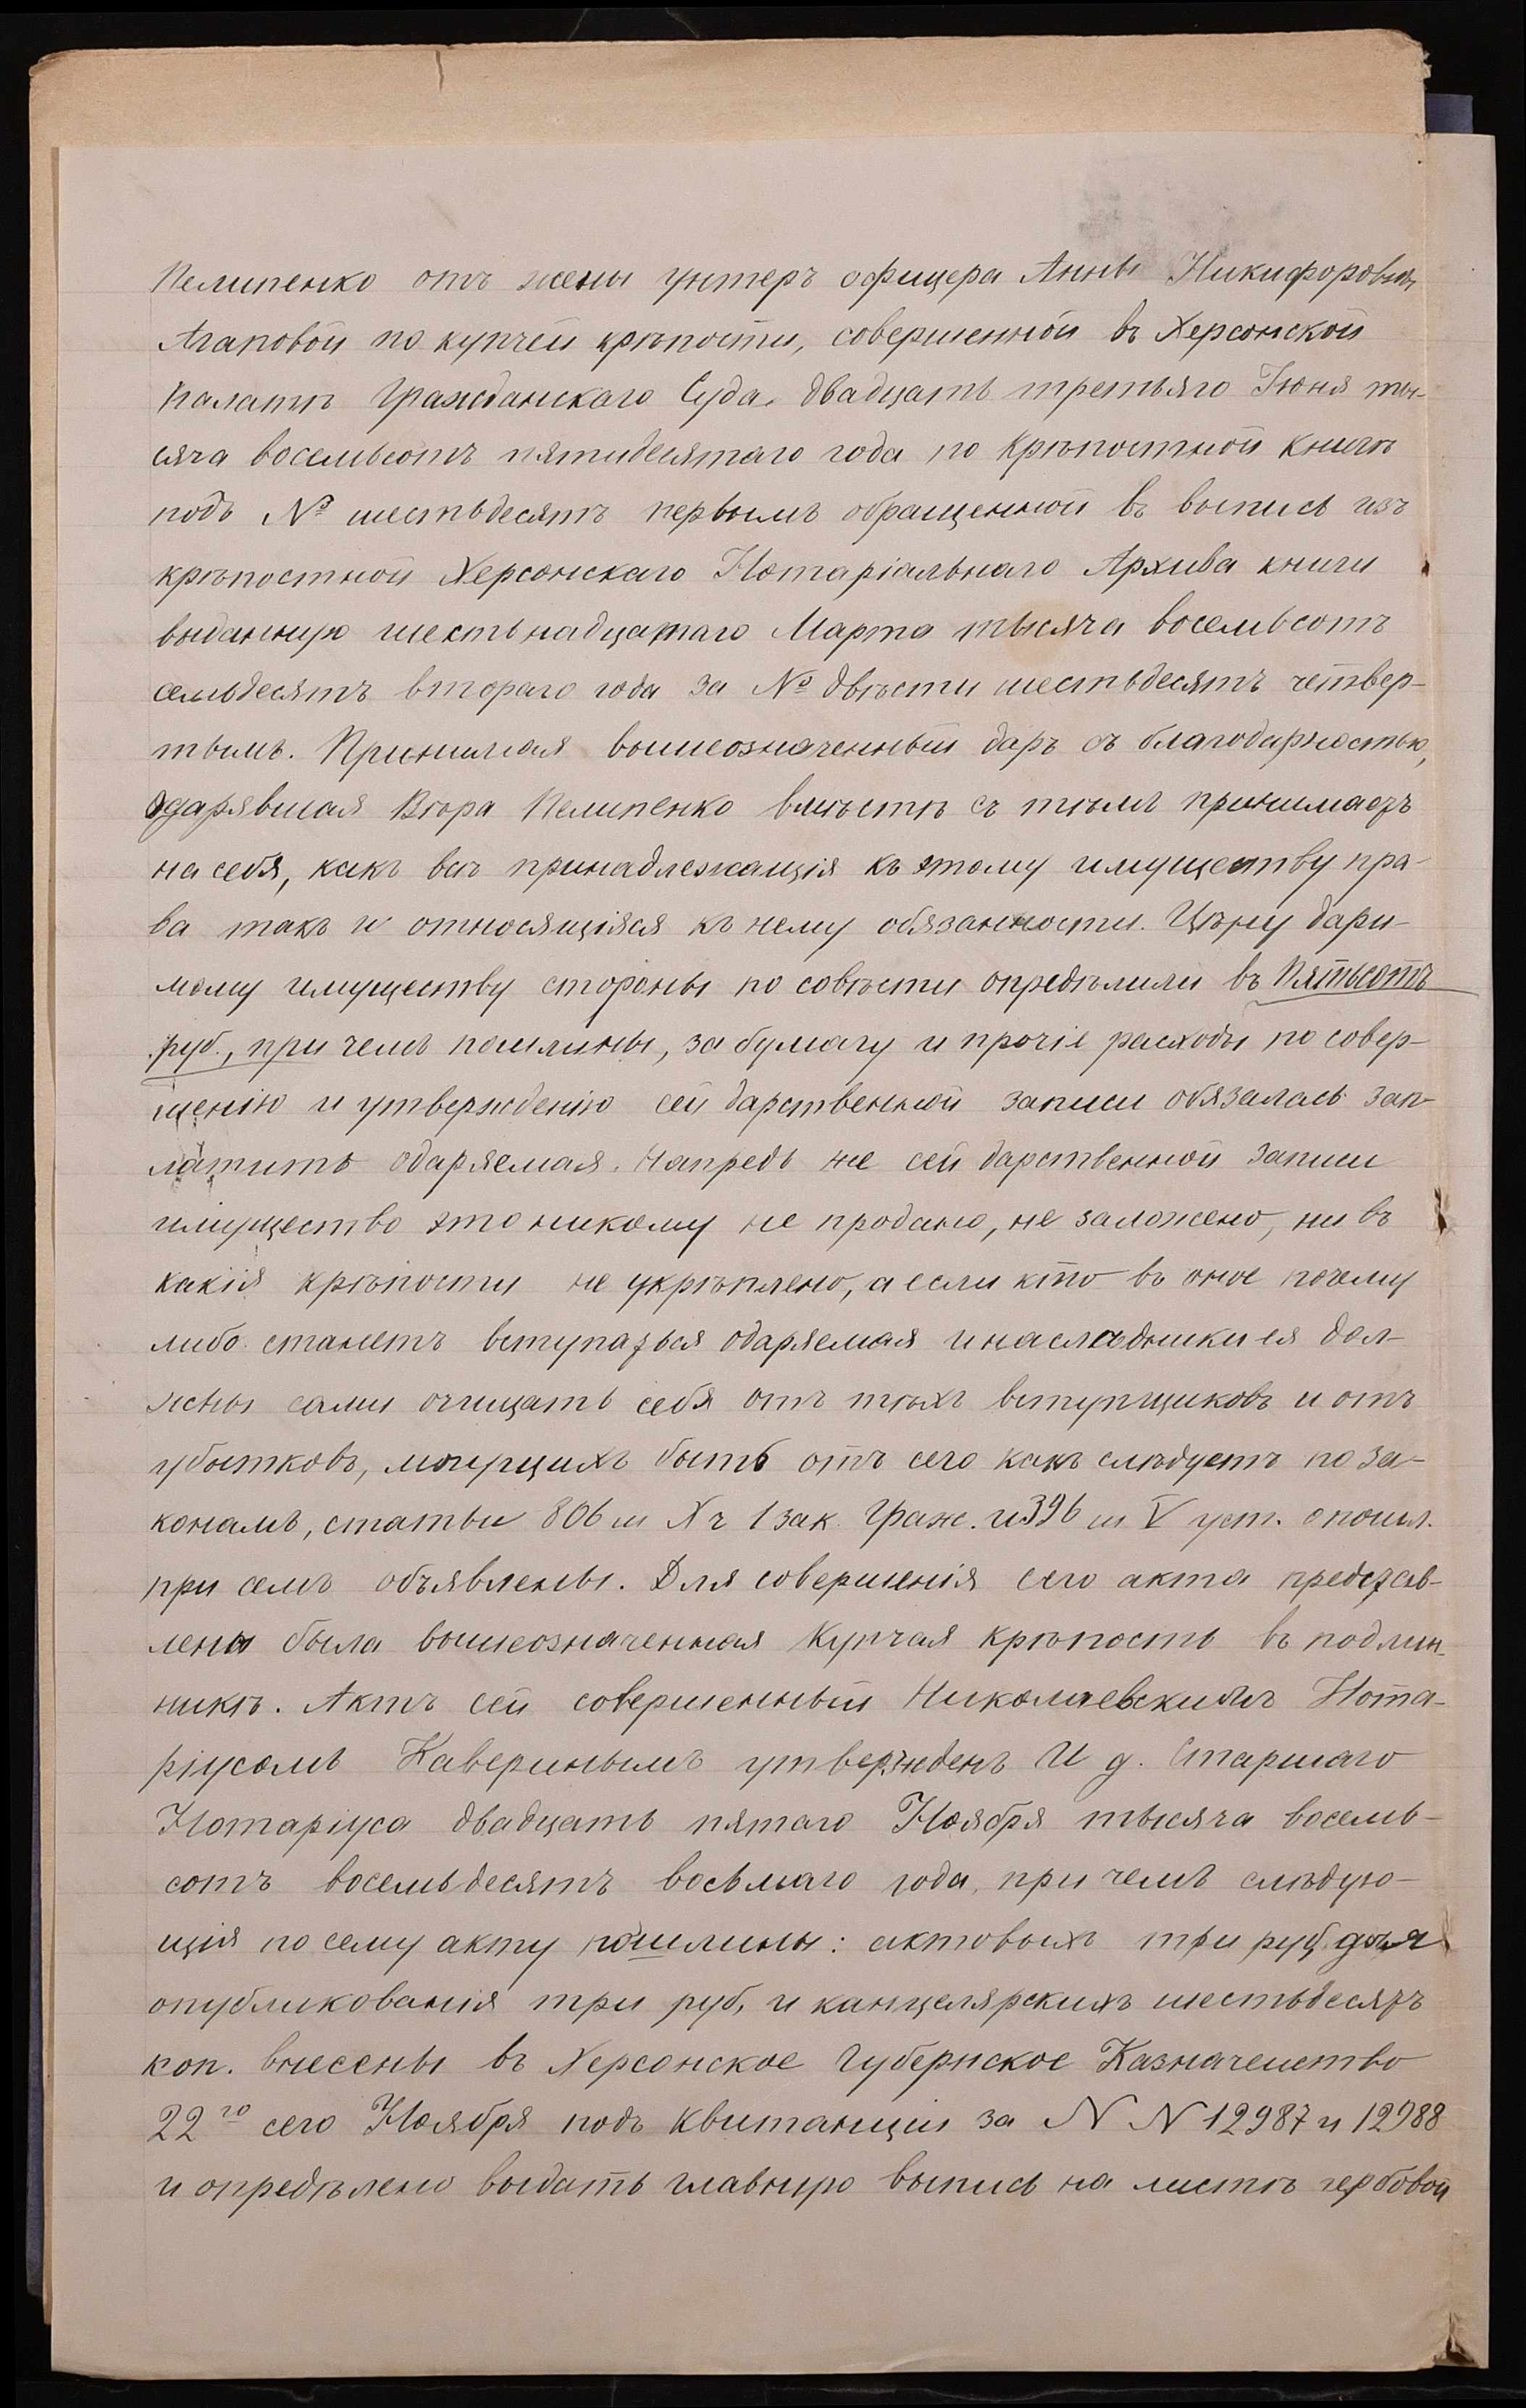 Пелипенко отъ жены унтеръ офицера Анны Никифоровны
Агаповой по купчей крѣпости, совершенной въ Херсонской
Палатѣ Гражданскаго Суда, двадцать третьяго Іюня ты-
сяча восемьсотъ пятидесятаго года по крѣпостной книгѣ
подъ № шестьдесятъ первымъ обращенной въ выпись изъ
крѣпостной Херсонскаго Нотаріальнаго Архива книги
выданную шестьнадцатаго Марта тысяча восемьсотъ
семьдесятъ втораго года за № двѣсти шестьдесятъ четвер-
тымъ. Принимая вышеозначенный даръ съ благодарностью,
одарявшая Вѣра Пелипенко вмѣстѣ съ тѣмъ принимаетъ
на себя, какъ всѣ принадлежащія къ этому имуществу пра-
ва такъ и относящіяся къ нему обязанности. Цѣну дари-
мому имуществу стороны по совѣсти опредѣлили въ Пятьсотъ
руб., при чемъ пошлины, за бумагу и прочіе расходы по совер-
шенію и утвержденію сей дарственной записи обязалась зап-
латить одаряемая. Напредь же сей дарственной записи
имущество это никому не продано, не заложено, ни въ
какія крѣпости не укрѣплено, а если кто въ оное почему
либо станетъ вступаться одаряемая и наслѣдники ея дол-
жны сами очищать себя отъ тѣхъ вступщиковъ и отъ
убытковъ, могущихъ быть отъ сего какъ слѣдуетъ по за-
конамъ, статьи 806 ш Х ч 1 зак. Граж. и 396 ш V уст. о пошл.
при семъ объявлены. Для совершенія сего акта представ-
лена была вышеозначенная Купчая крѣпость въ подлин-
никѣ. Актъ сей совершенный Николаевскимъ Нота-
ріусомъ Каверинымъ утвержденъ И д. Старшаго
Нотаріуса двадцать пятаго Ноября тысяча восемь-
сотъ восемьдесятъ восьмаго года, при чемъ слѣдую-
щія по сему акту пошлины: актовыхъ три руб. для
опубликованія три руб, и канцелярскихъ шестьдесятъ
коп. внесены въ Херсонское Губернское Казначейство
22го сего Ноября подъ квитанціи за N N 12987 и 12988
и опредѣлено выдать главную выпись на листѣ гербовой